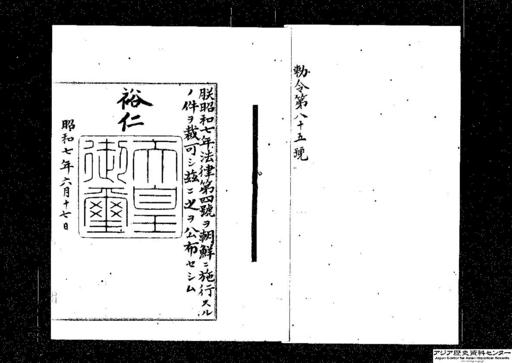 勅令第八十五號
朕昭和七年法律第四號ヲ朝鮮ニ施行スル
ノ件ヲ裁可シ玆ニ之ヲ公布セシム
裕仁
天皇
御璽
昭和七年六月十七日
アジア歴史資料センター
Japan Center for Asian Historical Records